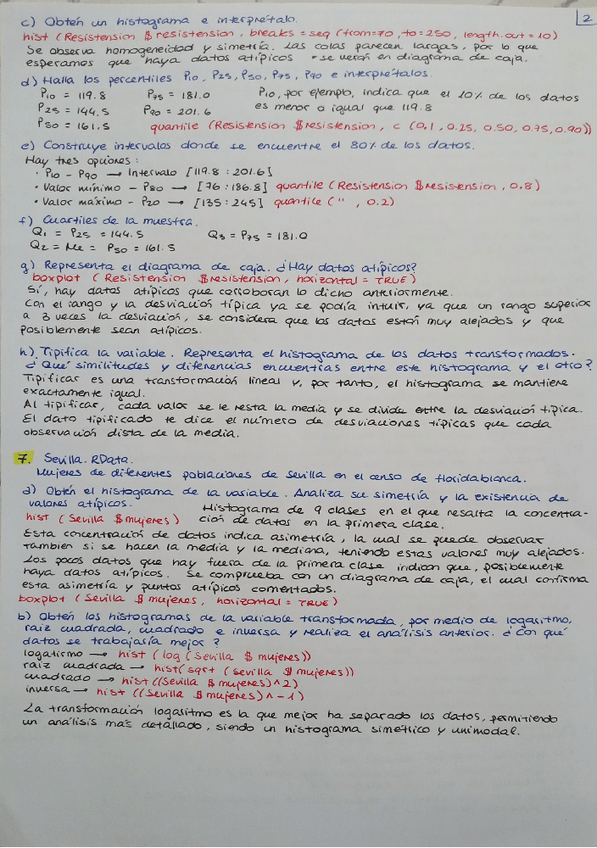 2
c) Obtén un histograma e interprétalo.
hist (Resistension $ resistension, breaks = seq (from=70, to=250, length.out=10)
Se observa homogeneidad y simetría. Las colas parecen largas, por lo que
esperamos que haya datos atípicos → se verán en diagrama de caja.
d) Halla los percentiles P10, P25, P50, P75, P90 e interprétalos.
P10 = 119.8 P75 = 181.0 P10, por ejemplo, indica que el 10% de los datos
P25 = 144.5 P90 = 201.6 es menor o igual que 119.8
P50 = 161.5 quantile (Resistension $resistension, c (0,1, 0.25, 0.50, 0.75, 0.90))
e) Construye intervalos donde se encuentre el 80% de los datos.
Hay tres opciones:
· P10 - P90 → Intervalo [119.8 : 201.6]
· Valor mínimo - P80 → [76 : 186.8] quantile (Resistension $resistension, 0.8)
· Valor máximo - P20 → [135 : 245] quantile (" , 0.2)
f) Cuartiles de la muestra.
Q1 = P25 = 144.5 Q3 = P75 = 181.0
Q2 = Me = P50 = 161.5
g) Representa el diagrama de caja. ¿Hay datos atípicos?
boxplot (Resistension $resistension, horizontal = TRUE)
Sí, hay datos atípicos que corroboran lo dicho anteriormente.
Con el rango y la desviación típica ya se podía intuir, ya que un rango superior
a 3 veces la desviación, se considera que los datos están muy alejados y que
posiblemente sean atípicos.
h) Tipifica la variable. Representa el histograma de los datos transformados.
¿Qué similitudes y diferencias encuentras entre este histograma y el otro?
Tipificar es una transformación lineal y, por tanto, el histograma se mantiene
exactamente igual.
Al tipificar, cada valor se le resta la media y se divide entre la desviación típica.
El dato tipificado te dice el número de desviaciones típicas que cada
observación dista de la media.
7. Sevilla.RData.
Mujeres de diferentes poblaciones de Sevilla en el censo de floridablanca.
a) Obtén el histograma de la variable. Analiza su simetría y la existencia de
valores atípicos. Histograma de 9 clases en el que resalta la concentra-
hist (Sevilla $ mujeres) ción de datos en la primera clase.
Esta concentración de datos indica asimetría, la cual se puede observar
también si se hacen la media y la mediana, teniendo estas valores muy alejados.
Los pocos datos que hay fuera de la primera clase indican que, posiblemente
haya datos atípicos. Se comprueba con un diagrama de caja, el cual confirma
esta asimetría y puntos atípicos comentados.
boxplot (Sevilla $ mujeres, horizontal = TRUE)
b) Obtén los histogramas de la variable transformada, por medio de logaritmo,
raíz cuadrada, cuadrado e inversa y realiza el análisis anterior. ¿Con qué
datos se trabajaría mejor?
logaritmo → hist (log (Sevilla $ mujeres))
raíz cuadrada → hist (sqrt (Sevilla $ mujeres))
cuadrado → hist ((Sevilla $ mujeres) ^ 2)
inversa → hist ((Sevilla $ mujeres) ^ -1)
La transformación logaritmo es la que mejor ha separado los datos, permitiendo
un análisis más detallado, siendo un histograma simétrico y unimodal.